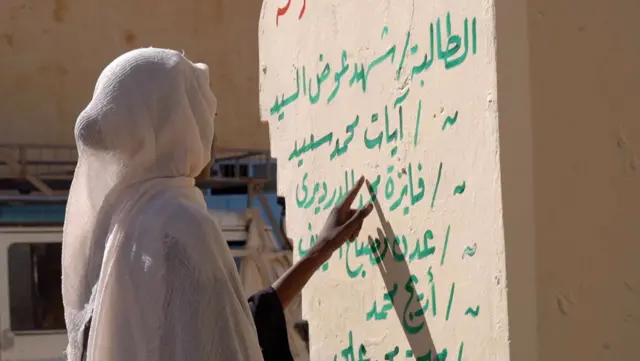 الطالبة/ شهد عوض السيد
〃 / آيات محمد سعيد
〃 / فائزة محمد الدرديري
〃 / عدن
〃 / أريج محمد
〃 / علي